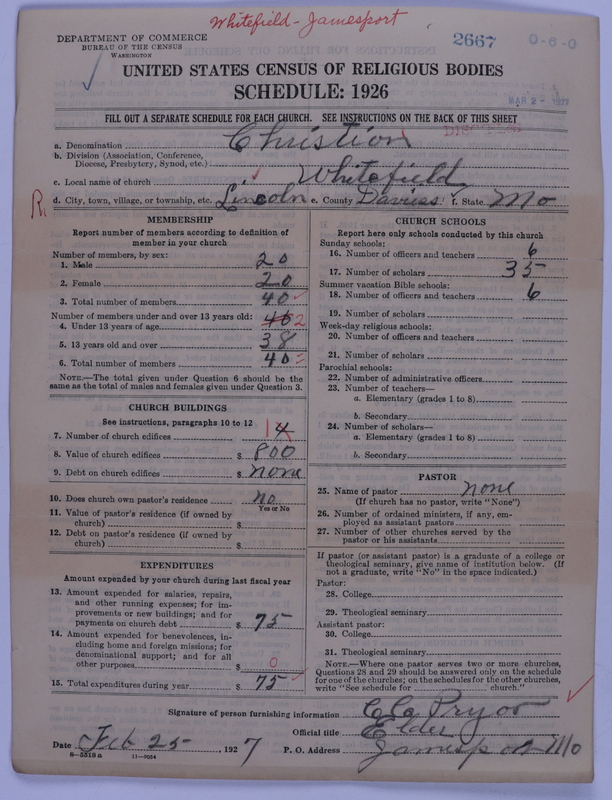 Whitefield - Jamesport
DEPARTMENT OF COMMERCE
BUREAU OF THE CENSUS
WASHINGTON
2667
0-6-0
UNITED STATES CENSUS OF RELIGIOUS BODIES
SCHEDULE: 1926
MAR 2 - 1927
FILL OUT A SEPARATE SCHEDULE FOR EACH CHURCH. SEE INSTRUCTIONS ON THE BACK OF THIS SHEET
a. Denomination Christian
b. Division (Association, Conference,
Diocese, Presbytery, Synod, etc.)
c. Local name of church Whitefield
d. City, town, village, or township, etc. Lincoln e. County Daviess f. State Mo
R.
MEMBERSHIP
Report number of members according to definition of
member in your church
Number of members, by sex:
1. Male 20
2. Female 20
3. Total number of members 40
Number of members under and over 13 years old:
4. Under 13 years of age 40 2
5. 13 years old and over 38
6. Total number of members 40
NOTE.—The total given under Question 6 should be
the same as the total of males and females given under Question 3.
CHURCH BUILDINGS
See instructions, paragraphs 10 to 12
7. Number of church edifices 1 4
8. Value of church edifices $ 800
9. Debt on church edifices $ none
10. Does church own pastor's residence no
Yes or No
11. Value of pastor's residence (if owned by
church) $
12. Debt on pastor's residence (if owned by
church) $
EXPENDITURES
Amount expended by your church during last fiscal year
13. Amount expended for salaries, repairs,
and other running expenses; for im-
provements or new buildings; and for
payments on church debt $ 75
14. Amount expended for benevolences, in-
cluding home and foreign missions; for
denominational support; and for all
other purposes $ 0
15. Total expenditures during year $ 75
CHURCH SCHOOLS
Report here only schools conducted by this church
Sunday schools:
16. Number of officers and teachers 6
17. Number of scholars 35
Summer vacation Bible schools:
18. Number of officers and teachers 6
19. Number of scholars
Week-day religious schools:
20. Number of officers and teachers
21. Number of scholars
Parochial schools:
22. Number of administrative officers
23. Number of teachers—
a. Elementary (grades 1 to 8)
b. Secondary
24. Number of scholars—
a. Elementary (grades 1 to 8)
b. Secondary
PASTOR
25. Name of pastor none
(If church has no pastor, write "None")
26. Number of ordained ministers, if any, em-
ployed as assistant pastors
27. Number of other churches served by the
pastor or his assistants
If pastor (or assistant pastor) is a graduate of a college or
theological seminary, give name of institution below. (If
not a graduate, write "No" in the space indicated.)
Pastor:
28. College
29. Theological seminary
Assistant pastor:
30. College
31. Theological seminary
NOTE.—Where one pastor serves two or more churches,
Questions 28 and 29 should be answered only on the schedule
for one of the churches; on the schedules for the other churches,
write "See schedule for church."
Signature of person furnishing information Pryor
Official title Elder
Date Feb 25, 1927 P. O. Address Jamesport Mo
8—5518a 11—9054